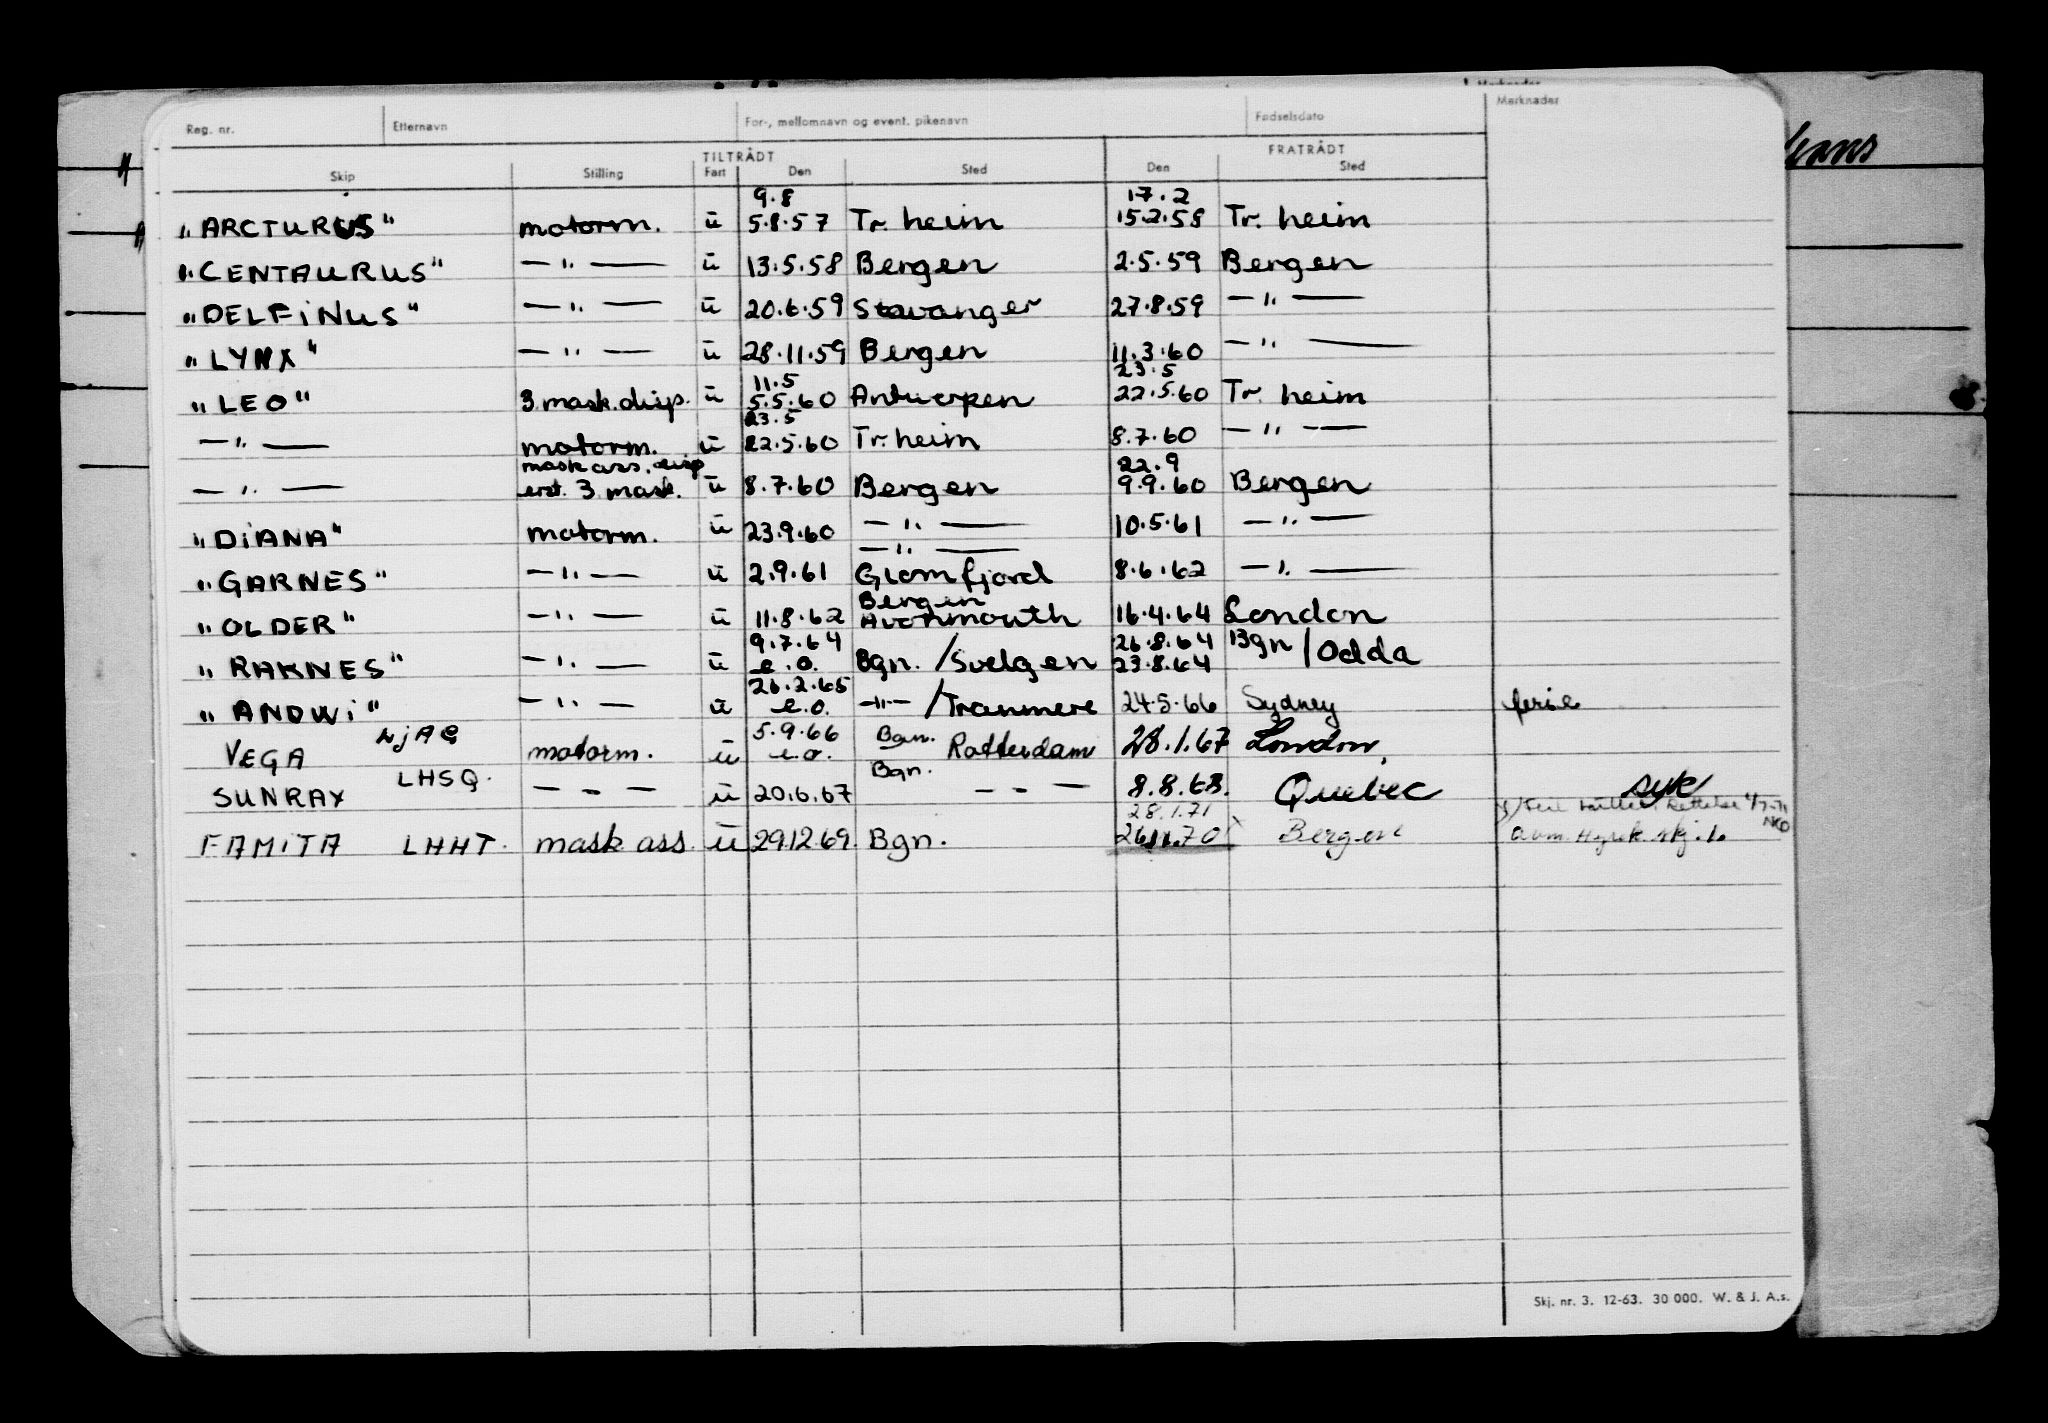 Merknader
Reg. nr. Etternavn For-, mellomnavn og event. pikenavn Fødselsdato
TILTRÅDT FRATRÅDT
Skip Stilling Fart Den Sted Den Sted
9.8 17.2
"ARCTURUS" motorm. ü 5.8.57 Tr. heim 15.2.58 Tr. heim
"CENTAURUS" — " — ü 13.5.58 Bergen 2.5.59 Bergen
"DELFiNUS" — " — ü 20.6.59 Stavanger 27.8.59 — " —
"LYNX" — " — ü 28.11.59 Bergen 11.3.60 — " —
11.5 23.5
"LEO" 3. mask. disp. ü 5.5.60 Antwerpen 22.5.60 Tr. heim
23.5
— " — motorm. ü 22.5.60 Tr. heim 8.7.60 — " —
mask ass. disp 22.9
— " — erst. 3 mask. ü 8.7.60 Bergen 9.9.60 Bergen
"DiANA" motorm. ü 23.9.60 — " — 10.5.61 — " —
— " —
"GARNES" — " — ü 2.9.61 Glomfjord 8.6.62 — " —
Bergen
"OLDER" — " — ü 11.8.62 Avonmouth 16.4.64 London
9.7.64 26.8.64
"RAKNES" — " — ü e.o. Bgn. / Svelgen 23.8.64 Bgn / Odda
26.2.65
"ANDWi" — " — ü e.o. — " — / Tranmere 24.5.66 Sydney ferie
LjAG 5.9.66 Bgn.
VEGA motorm. ü e.o. Rotterdam 28.1.67 London
LHSQ. Bgn.
SUNRAY — - — ü 20.6.67 - - — 8.8.68. Quebec syk
28.1.71
FAMiTA LHHT. mask ass. ü 29.12.69. Bgn. 26.11.70 Bergen
Skj. nr. 3. 12-63. 30 000. W. & J. A.s.